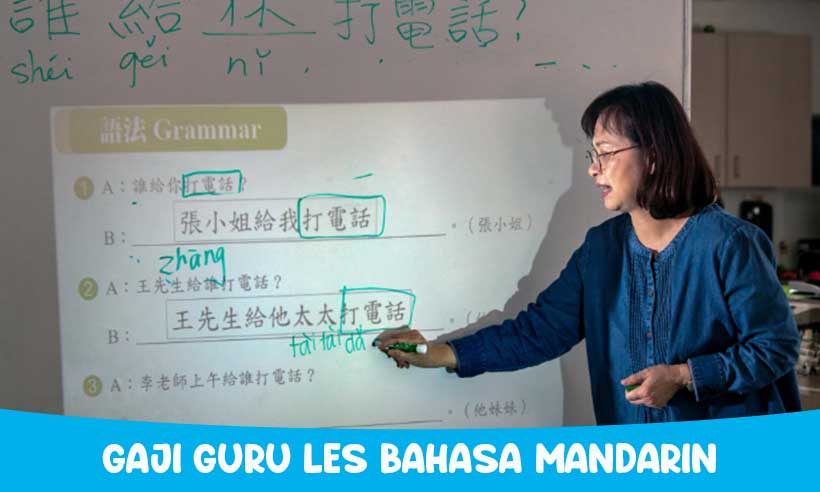 誰給 打電話?
shéi gěi nǐ
語法 Grammar
1 A：誰給你打電話？
張小姐給我打電話
B： 。（張小姐）
zhāng
2 A：王先生給誰打電話？
王先生給他太太打電話
B： 。
tàitài dǎ
3 A：李老師上午給誰打電話？
。（他妹妹）
GAJI GURU LES BAHASA MANDARIN